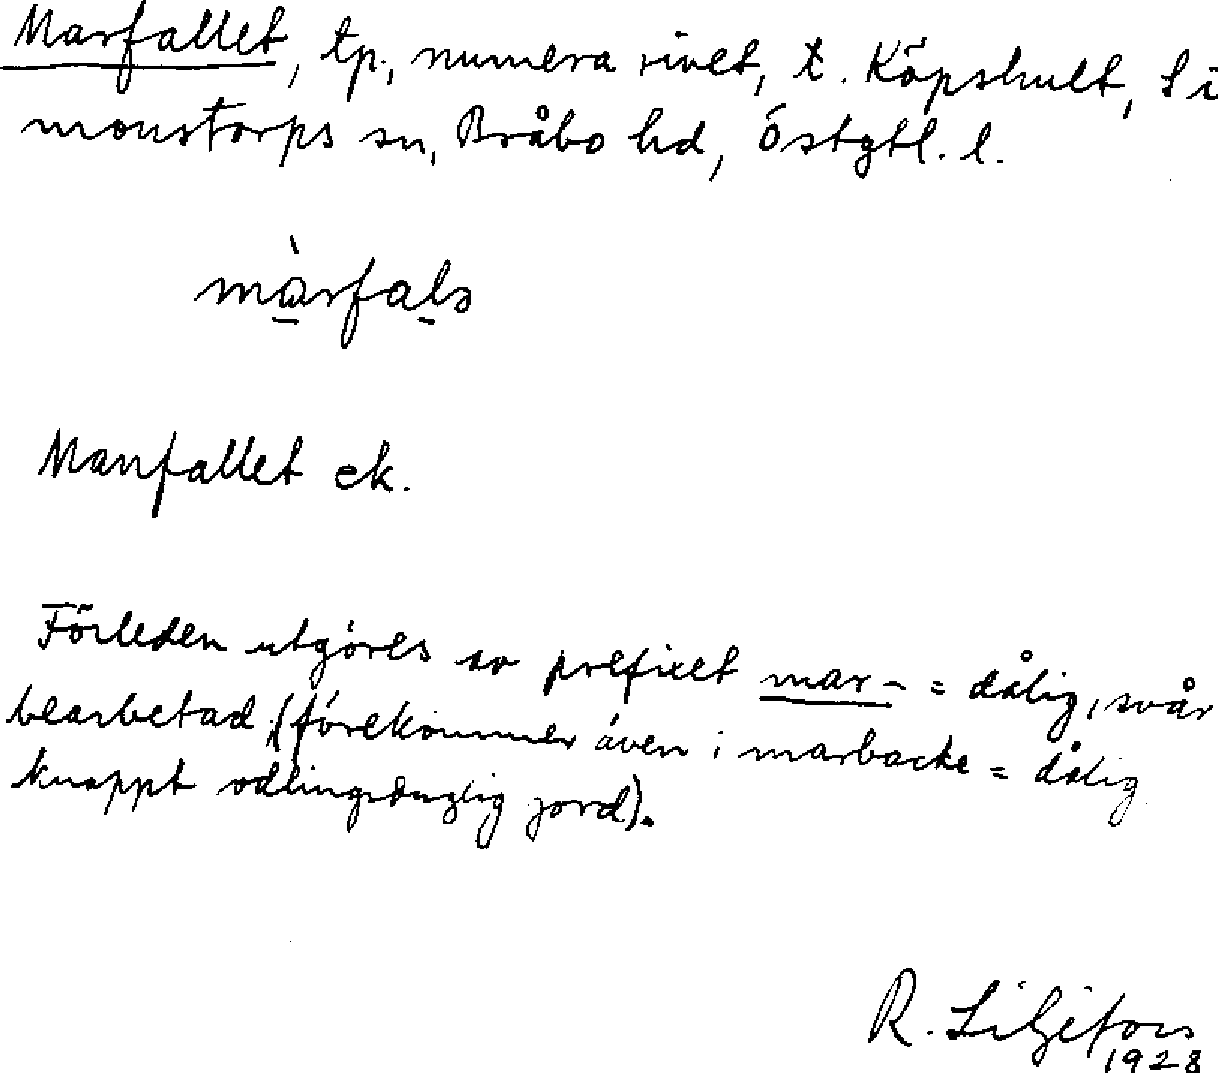 Marfallet, tp., numera rivet, t. Köpshult, Si
monstorps sn, Bråbo hd, Östgtl. l.
màrfalə
Manfallet ek.
Förleden utgöres av prefixet mar- = dålig, svår
bearbetad (förekommer även i marbacke = dålig
knappt odlingsduglig jord).
R. Liljefors
1928